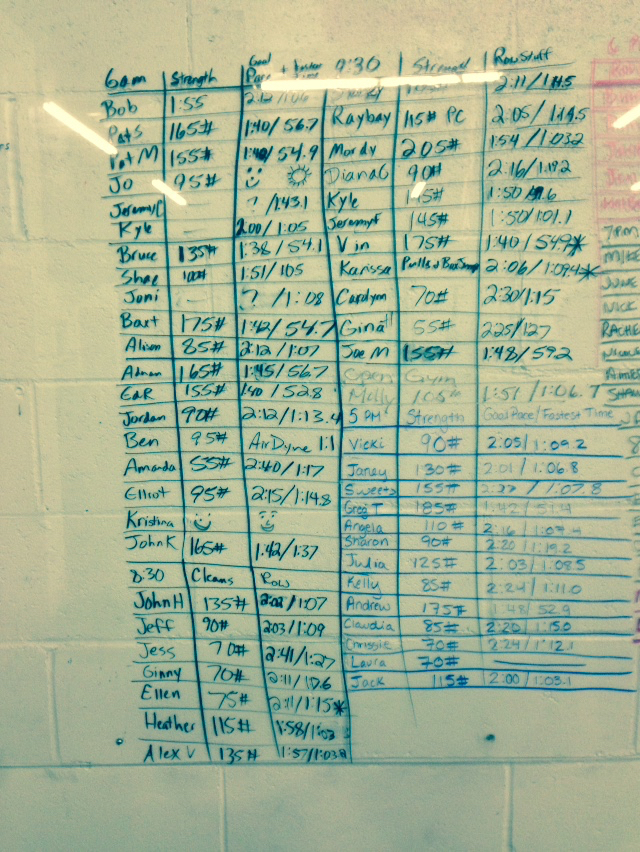 6am Strength Goal Pace +
Bob 1:55 2:12/1:06
Pat S 165# 1:40/56.7
Pat M 155# 1:40/54.9
Jo 95#
Jeremy ? /143.1
Kyle - 2:00/1:05
Bruce 135# 1:38/54.1
Shae 100# 1:51/105
Joni - ? /1:08
Bart 175# 1:42/54.7
Alison 85# 2:12/1:07
Adnan 165# 1:45/56.7
155# 1:40/52.8
Jordan 90# 2:12/1:13.4
Ben 95# AirDyne 1:1
Amanda 55# 2:40/1:17
Elliot 95# 2:15/1:14.8
Kristina
John K 165# 1:42/1:37
8:30 Cleans Row
John H 135# 2:02/1:07
Jeff 90# 2:03/1:09
Jess 70# 2:41/1:27
Ginny 70# 2:11/
Ellen 75# 2:11/1:15*
Heather 115# 1:58/1:03
Alex V 135# 1:57/1:03.8
9:30 Strength Row Stuff
2:11/1:11.5
Raybay 115# PC 2:05/1:14.5
Mordy 205# 1:54/1:03.2
Diana G 90# 2:16/1:19.2
Kyle 1:50/
Jeremy F 145# 1:50/1:01.1
Vin 175# 1:40/549*
Karissa Pulls & Box Jump 2:06/1:09.4*
Carolyn 70# 2:30/1:15
Gina 55# 225/127
Joe M 155# 1:48/59.2
Open Gym
Molly 105# 1:51/1:06.7
5 PM Strength Goal Pace/Fastest Time
Vicki 90# 2:05/1:09.2
Janey 130# 2:01/1:06.8
Sweets 155# /1:07.8
Greg T 185# 1:42/51.4
Angela 110# 2:16/
Sharon 90# 2:20/1:19.2
Julia 125# 2:03/1:08.5
Kelly 85# 2:24/1:11.0
Andrew 175# 1:48/52.9
Claudia 85# 2:20/1:15.0
Chrissie 70# 2:24/1:12.1
Laura 70#
Jack 115# 2:00/1:03.1
7pm
MIKE
JUNE
NICK
RACHE